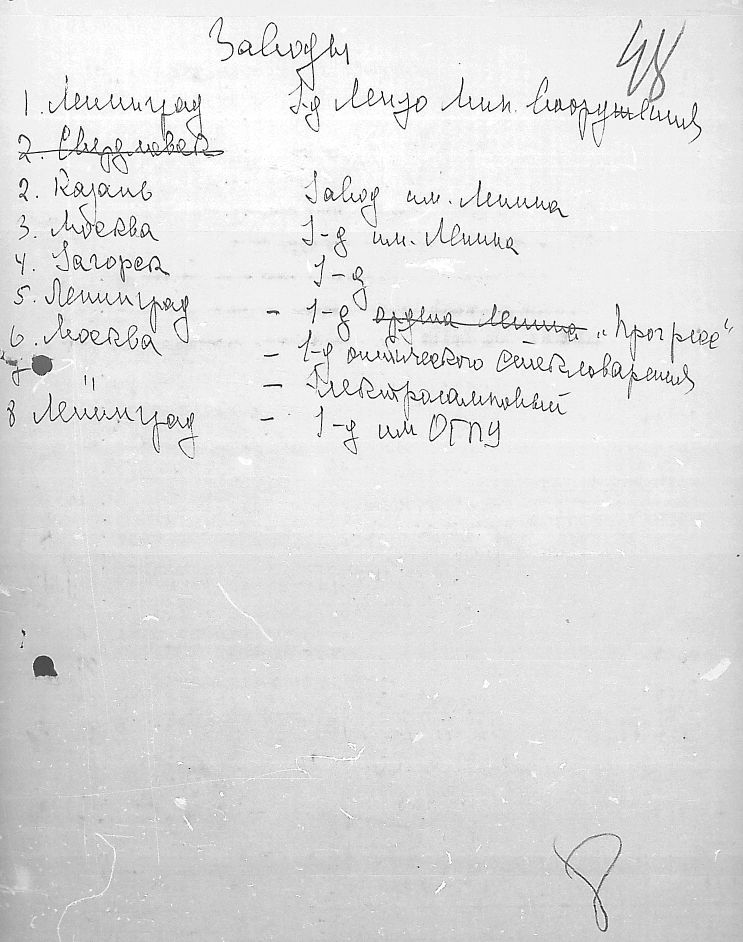 Заводы
48
1. Ленинград З-д Лензо Мин. Вооружения
2. Свердловск
2. Казань Завод им. Ленина
3. Москва З-д им. Ленина
4. Загорск З-д
5. Ленинград - З-д ордена Ленина „Прогресс"
6. Москва - З-д оптического стекловарения
7 " - Электроламповый
8 Ленинград - З-д им ОГПУ
8